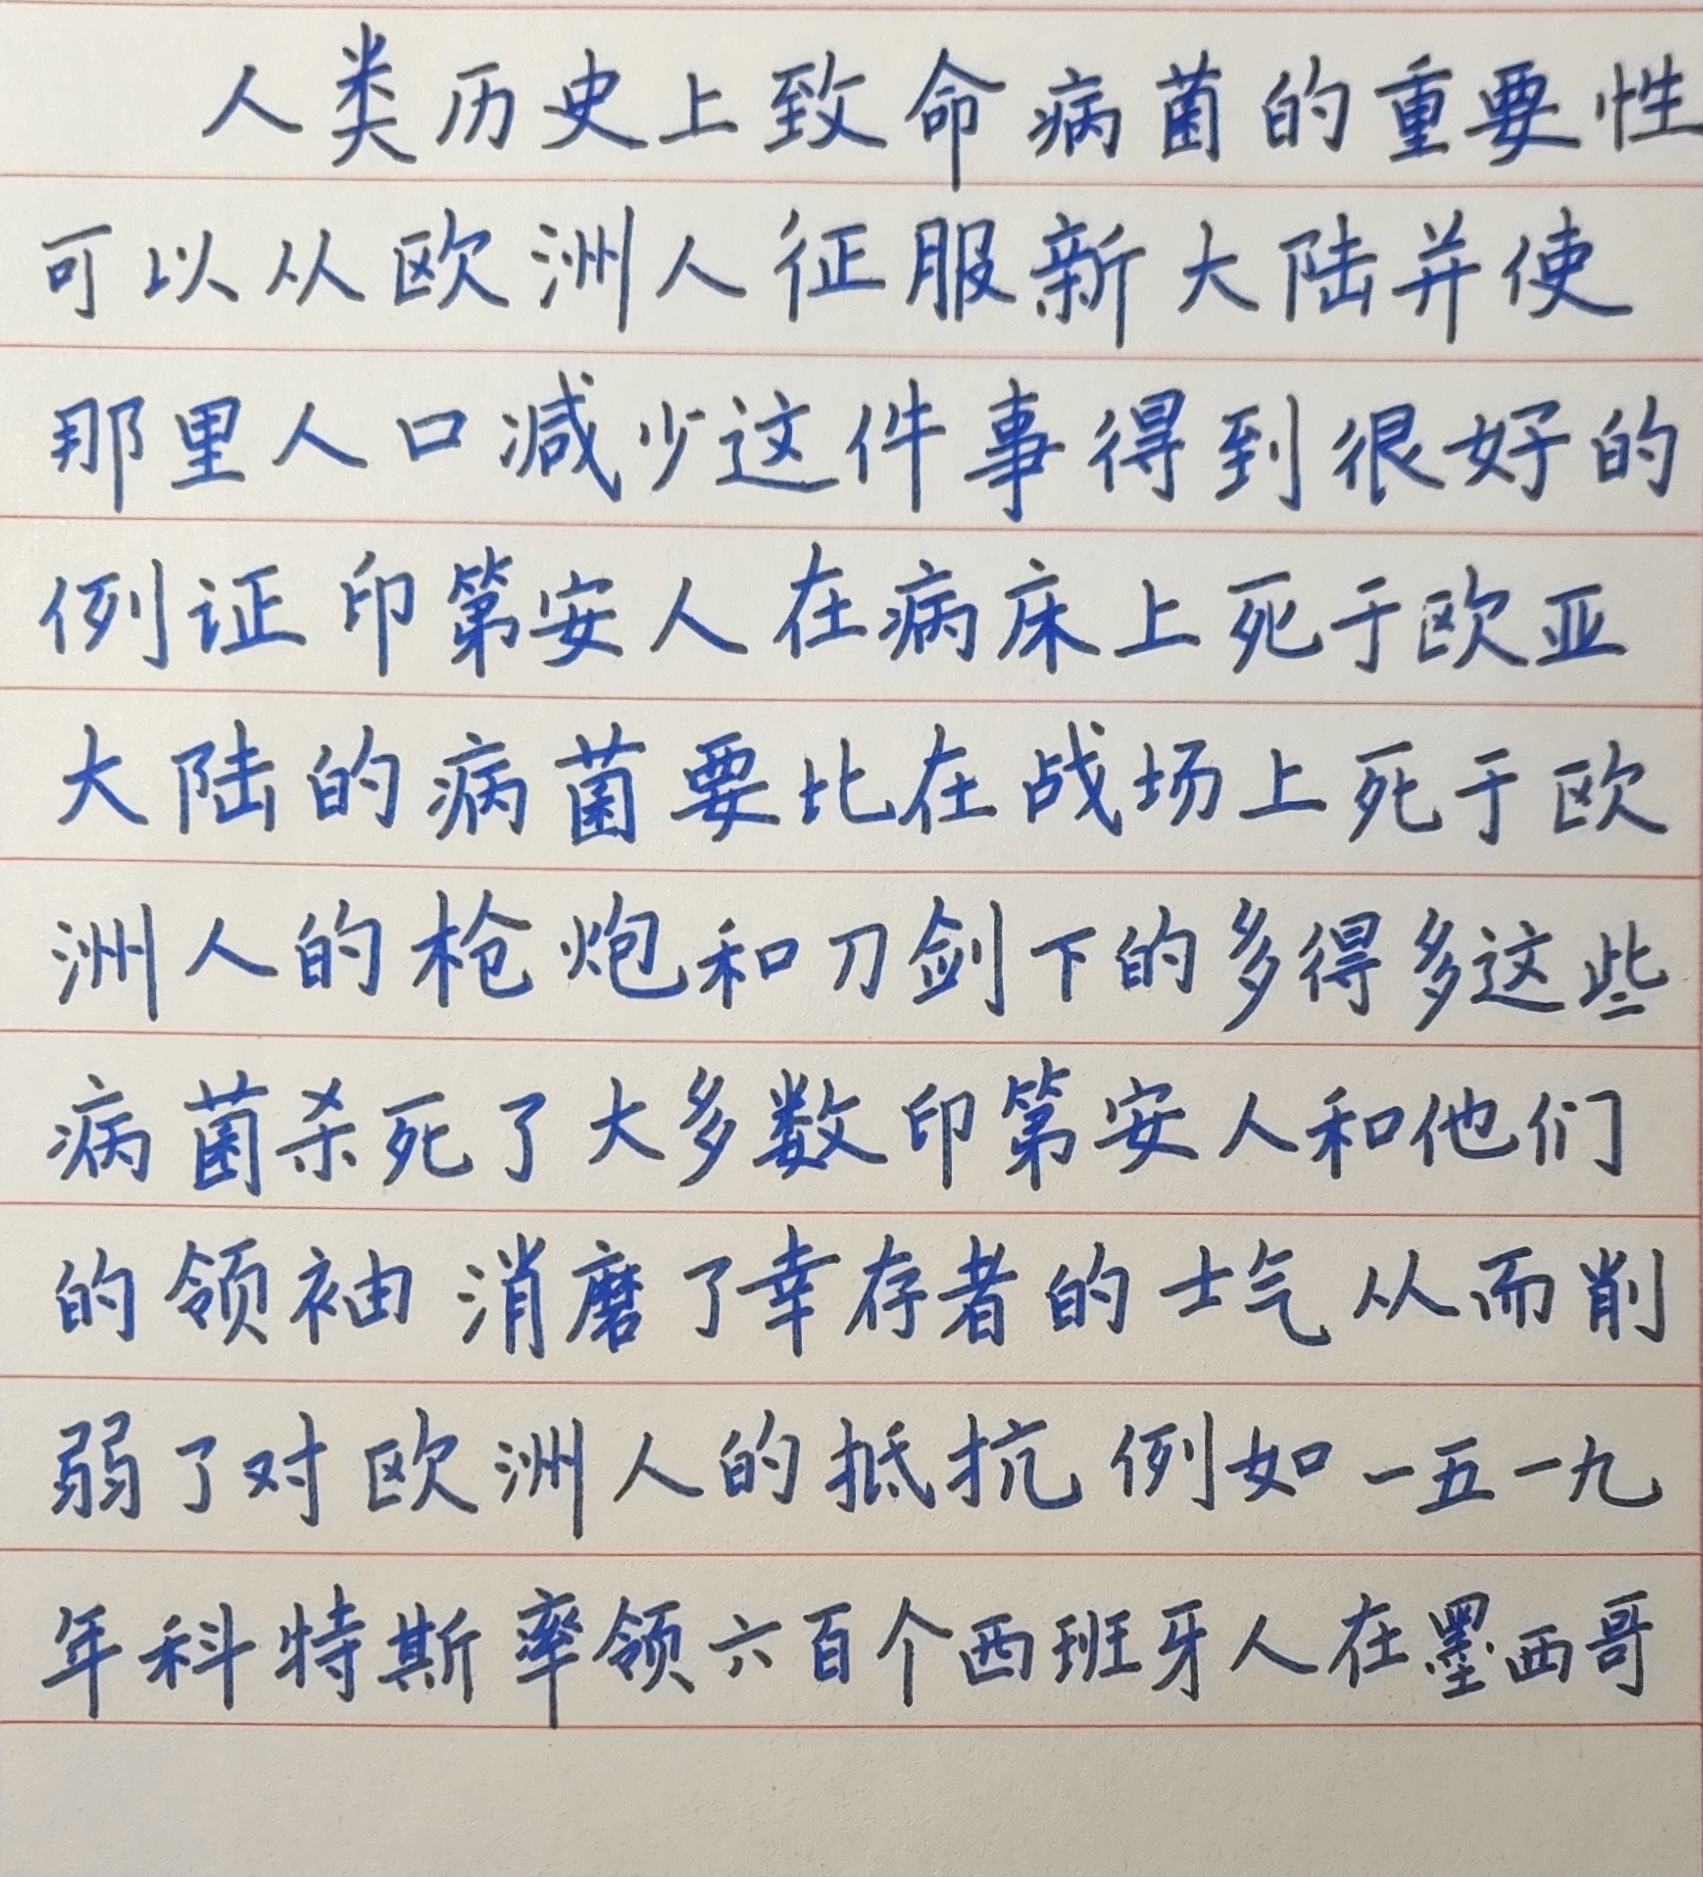 人类历史上致命病菌的重要性
可以从欧洲人征服新大陆并使
那里人口减少这件事得到很好的
例证印第安人在病床上死于欧亚
大陆的病菌要比在战场上死于欧
洲人的枪炮和刀剑下的多得多这些
病菌杀死了大多数印第安人和他们
的领袖消磨了幸存者的士气从而削
弱了对欧洲人的抵抗例如一五一九
年科特斯率领六百个西班牙人在墨西哥